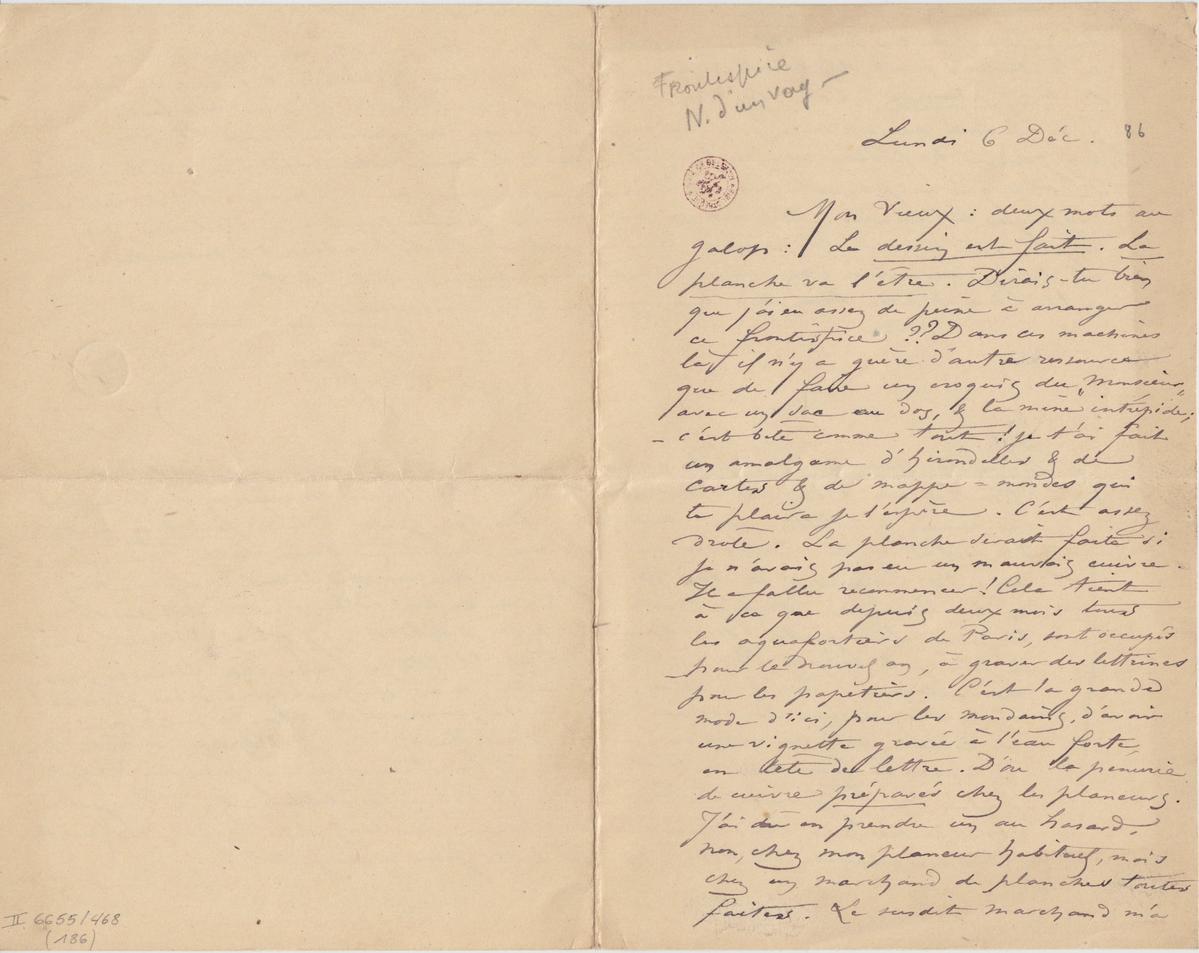 Frontispice
N. d'un voy-
Lundi 6 Déc. 86
Mon Vieux : deux mots au
galop : Le dessin est fait. La
planche va l'être. Dirais-tu bien
que j'ai eu assez de peine à arranger
ce frontispice ?? Dans ces machines
là, il n'y a guère d'autre ressource
que de faire un croquis du "Monsieur"
avec un sac au dos, & la mine intrépide;
- c'est bête comme tout! Je t'ai fait
un amalgame d'hirondelles & de
cartes & de mappe=mondes qui
te plaira je l'espère. C'est assez
drôle. La planche serait faite si
je n'avais pas eu un mauvais cuivre.
Il a fallu recommencer! Cela tient
à ce que depuis deux mois tous
les aquafortiers de Paris, sont occupés
pour le nouvel an, à graver des lettrines
pour les papetiers. C'est la grande
mode d'ici, pour les mondains, d'avoir
une vignette gravée à l'eau forte
en tête de lettre. D'où la pénurie
de cuivre préparés chez les planeurs.
J'ai dû en prendre un au hasard,
non, chez mon planeur habituel, mais
chez un marchand de planches toutes
faites. Le susdit marchand m'a
II 6655/468
(186)